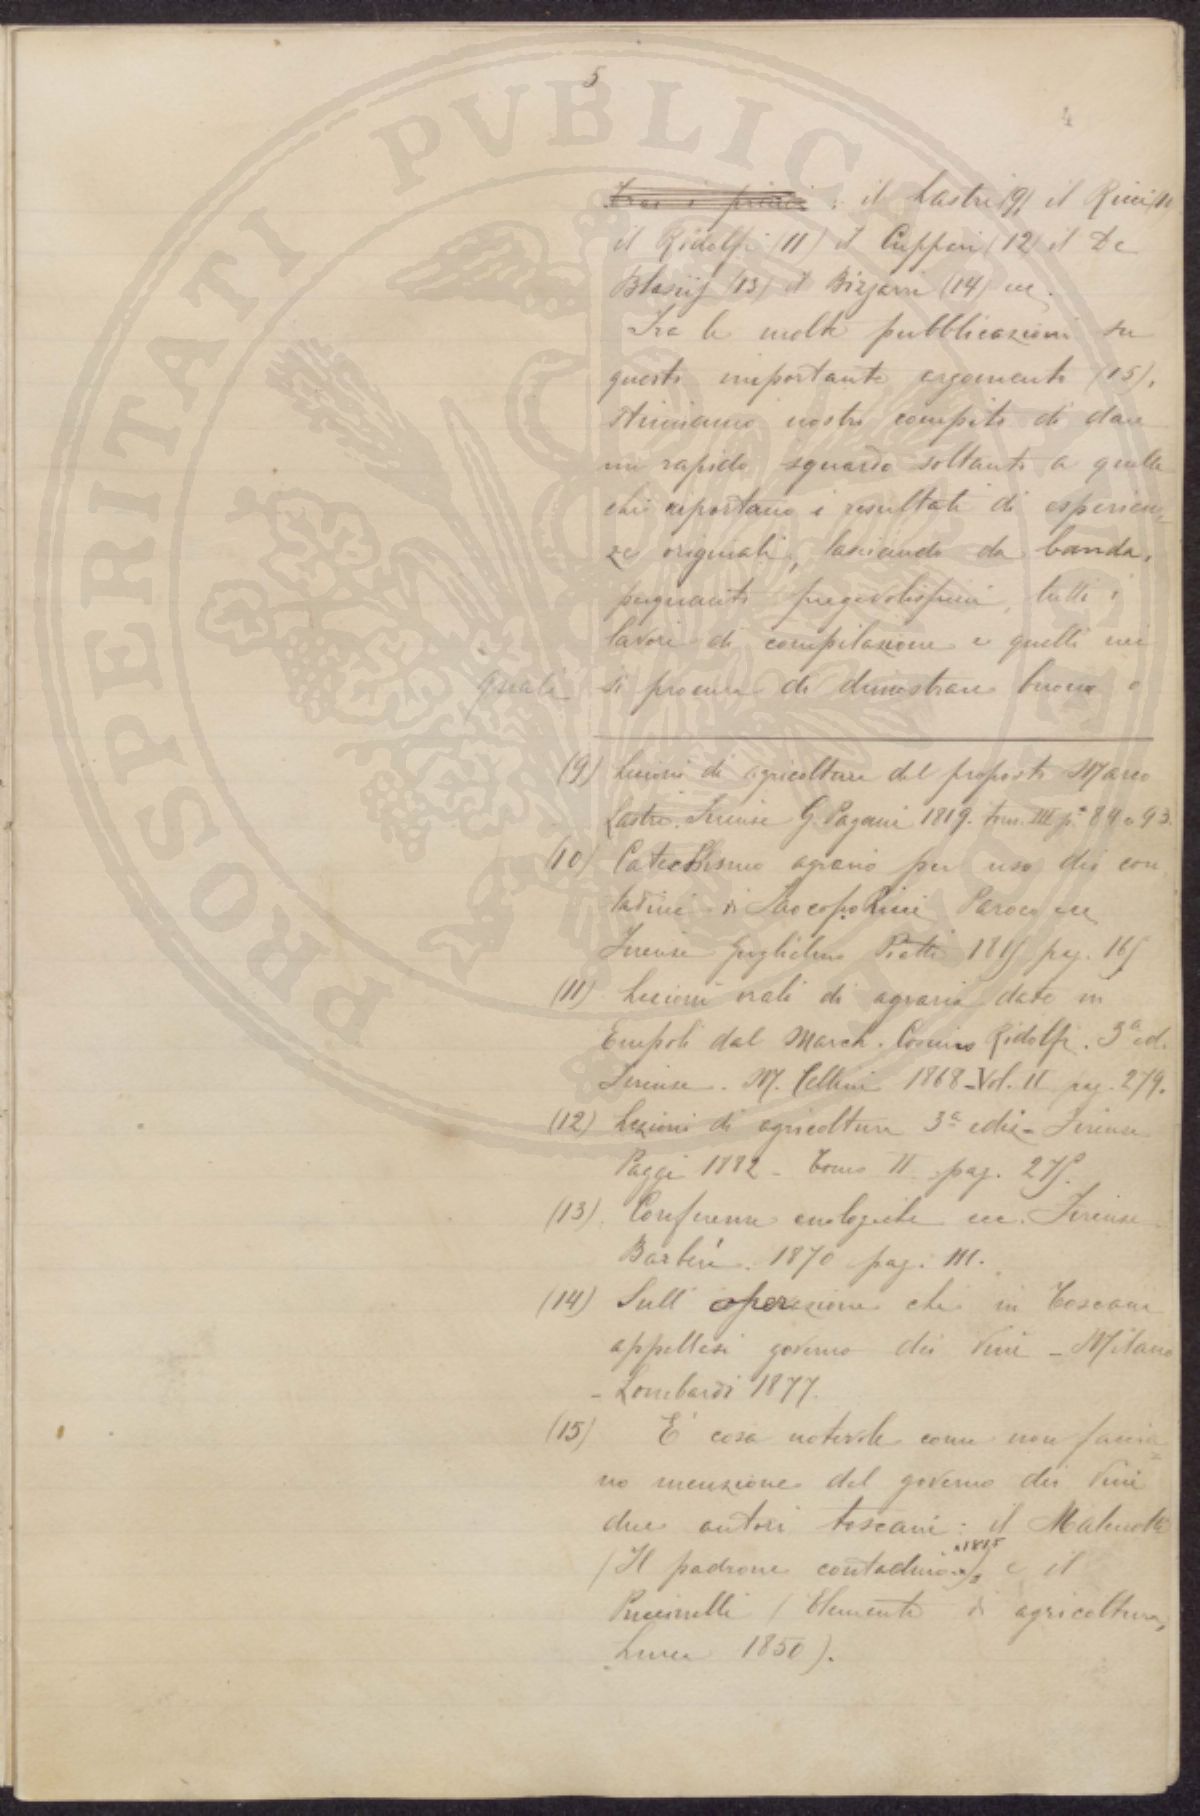 5
4
Tra i primi : il Lastri (9) il Ricci (10
il Ridolfi (11) il Cuppari (12) il De
Blasiis (13) il Bizzarri (14) ecc.
Tra le molte pubblicazioni su
questo importante argomento (15),
stimiamo nostro compito di dare
un rapido sguardo soltanto a quelle
che riportano i resultati di esperien=
ze originali, lasciando da banda,
quantunque pregevolissimi, tutti i
lavori di compilazione e quelli nei
quali si procura di dimostrare buono o
(9) Lezioni di agricoltura del proposto Marco
Lastri. Firenze G. Pagani 1819. tom. III p. 89 a 93.
(10) Catechismo agrario per uso dei con
tadini di Jacopo Ricci Paroco ecc
Firenze Guglielmo Piatti 1815 pag. 165
(11) Lezioni orali di agraria date in
Empoli dal March. Cosimo Ridolfi. 3a ed.
Firenze. M. Cellini 1868 - Vol. II pag. 279.
(12) Lezioni di agricoltura 3a ediz - Firenze
Paggi 1882 - Tomo II pag. 275.
(13) Conferenze enologiche ecc. Firenze
Barbèra. 1870 pag. 111.
(14) Sull' operazione che in Toscana
appellasi governo dei vini - Milano
- Lombardi 1877.
(15) E' cosa notevole come non faccia=
no menzione del governo dei vini
due autori toscani : il Malenotti
(Il padrone contadino 1815) e il
Puccinelli (Elementi di agricoltura,
Lucca 1850).
PROSPERITATI PVBLICAE